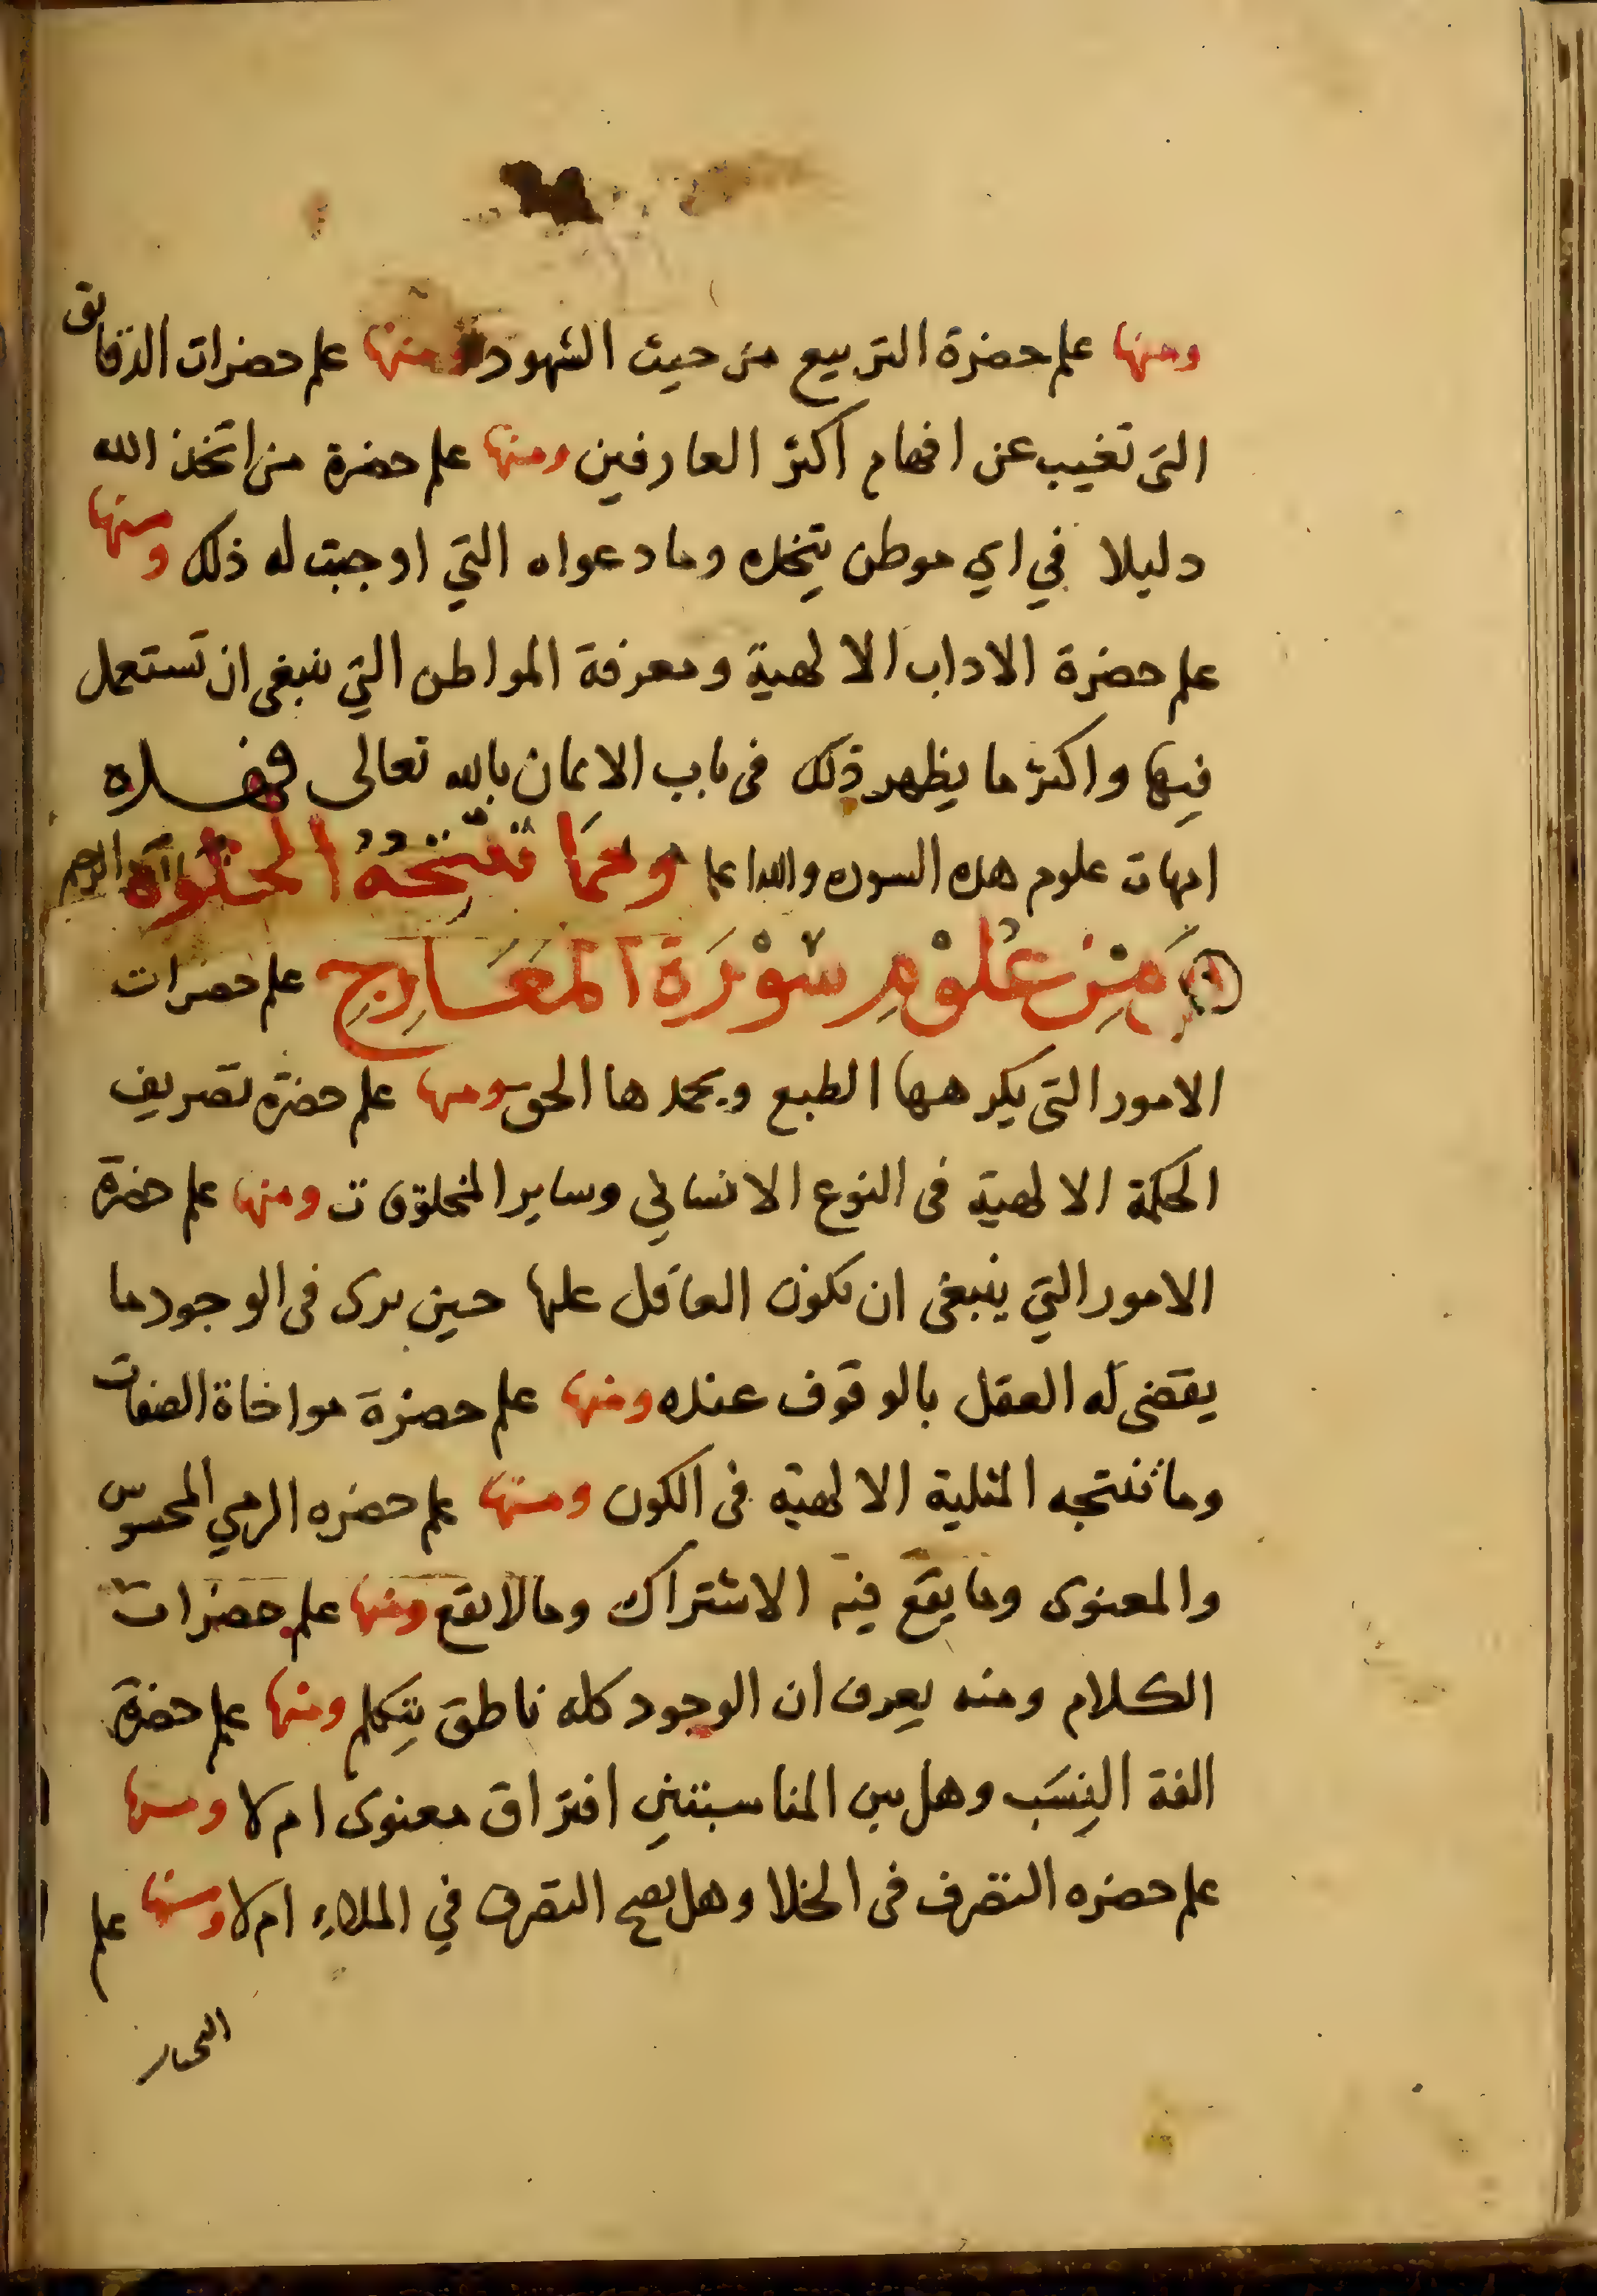 ومنها علم حضرة التربيع من حيث الشهود ومنها علم حضرات الدقائق
التى تغيب عن افهام اكثر العارفين ومنها علم حضرة من اتخذ الله
دليلا في اي موطن يتخذه وما دعواه التي اوجبت له ذلك ومنها
علم حضرة الاداب الالهية ومعرفة المواطن التي ينبغى ان تستعمل
فيها واكثر ما يظهر ذلك فى باب الايمان بالله تعالى فهذه
امهات علوم هذه السوره والله اعلم ومما تنتجه الخلوة
من علوم سورة المعارج علم حضرات
الامور التى يكرهها الطبع ويحمدها الحق ومنها علم حضرة تصريف
الحكمة الالهية فى النوع الانساني وساير المخلوقات ومنها علم حضرة
الامور التي ينبغى ان يكون العاقل عليها حين يرى فى الوجود ما
يقضى له العقل بالوقوف عنده ومنها علم حضرة مواخاة الصفات
وما تنتجه المثلية الالهية فى الكون ومنها علم حضره الرمي المحسوس
والمعنوى وما يقع فيه الاشتراك وما لا يقع ومنها علم حضرات
الكلام ومنه يعرف ان الوجود كله ناطق يتكلم ومنها علم حضرة
الفة النِسَب وهل بين المناسبتين افتراق معنوى ام لا ومنها
علم حضره التصرف فى الخلا وهل يصح التصرف في الملاء ام لا ومنها علم